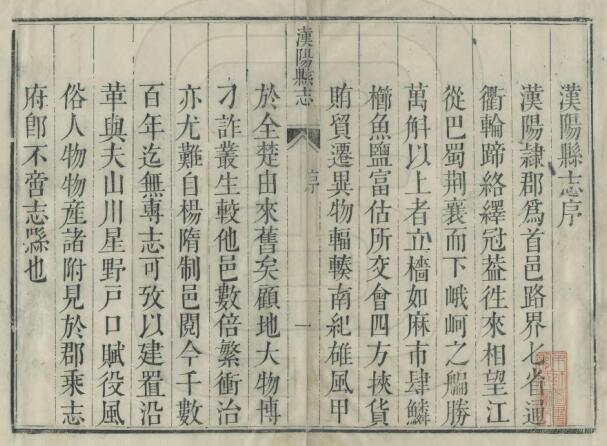 漢陽縣志序
漢陽隸郡爲首邑路界七省通
衢輪蹄絡繹冠葢徃來相望江
從巴蜀荆襄而下峨岢之艑勝
萬斛以上者立檣如麻市肆鱗
櫛魚鹽富估所交會四方挾貨
賄貿遷異物輻輳南紀雄風甲
漢陽縣志
序
一
於全楚由來舊矣顧地大物博
刁詐叢生較他邑數倍繁衝治
亦尤難自楊隋制邑閱今千數
百年迄無專志可攷以建置沿
革與夫山川星野戸口賦役風
俗人物物産諸附見於郡乘志
府卽不啻志縣也